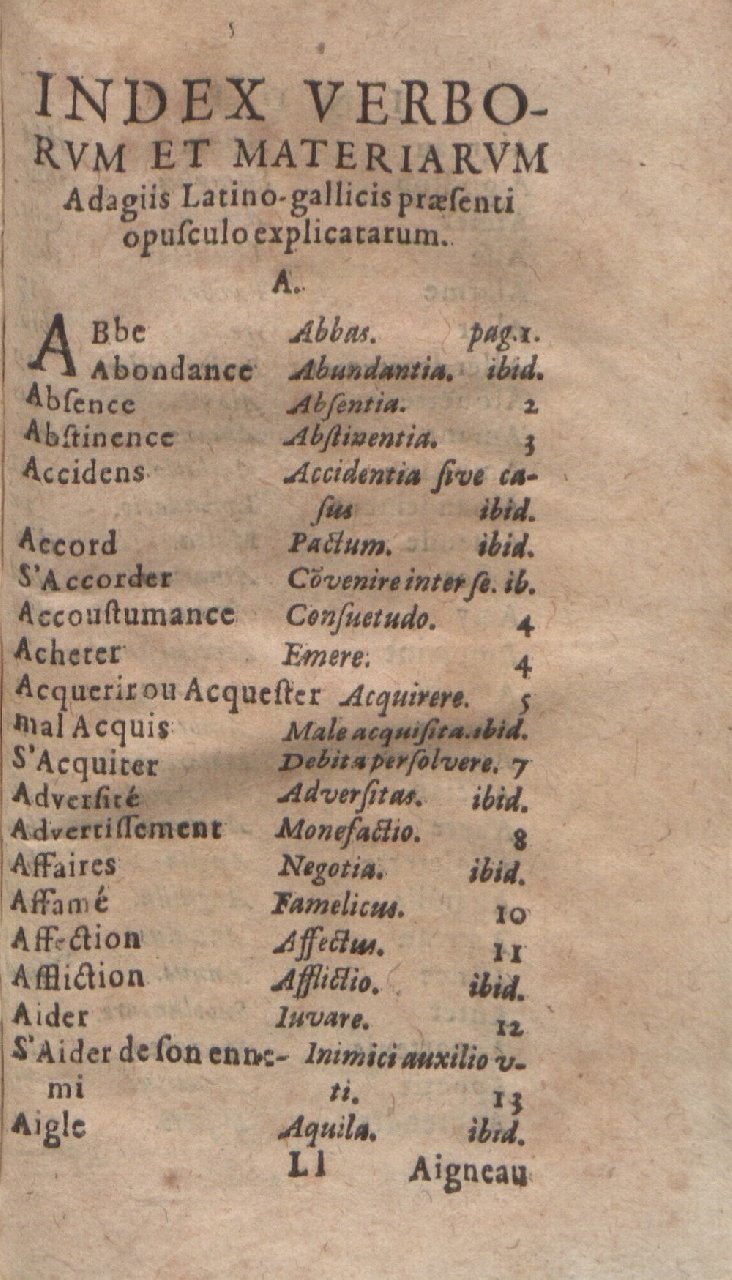 INDEX VERBO-
RVM ET MATERIARVM
Adagiis Latino-gallicis præſenti
opuſculo explicatarum.
A.
ABbe Abbas. pag.1.
Abondance Abundantia. ibid.
Abſence Abſentia. 2
Abſtinence Abſtinentia. 3
Accidens Accidentia ſive ca-
ſus ibid.
Accord Pactum. ibid.
S'Accorder Cōvenire inter ſe. ib.
Accouſtumance Conſuetudo. 4
Acheter Emere. 4
Acquerir ou Acqueſter Acquirere. 5
mal Acquis Male acquiſita. ibid.
S'Acquiter Debita perſolvere. 7
Adverſité Adverſitas. ibid.
Advertiſſement Monefactio. 8
Affaires Negotia. ibid.
Affamé Famelicus. 10
Affection Affectus. 11
Affliction Afflictio. ibid.
Aider Iuvare. 12
S'Aider de ſon enne- Inimici auxilio v-
mi ti. 13
Aigle Aquila. ibid.
Ll Aigneau